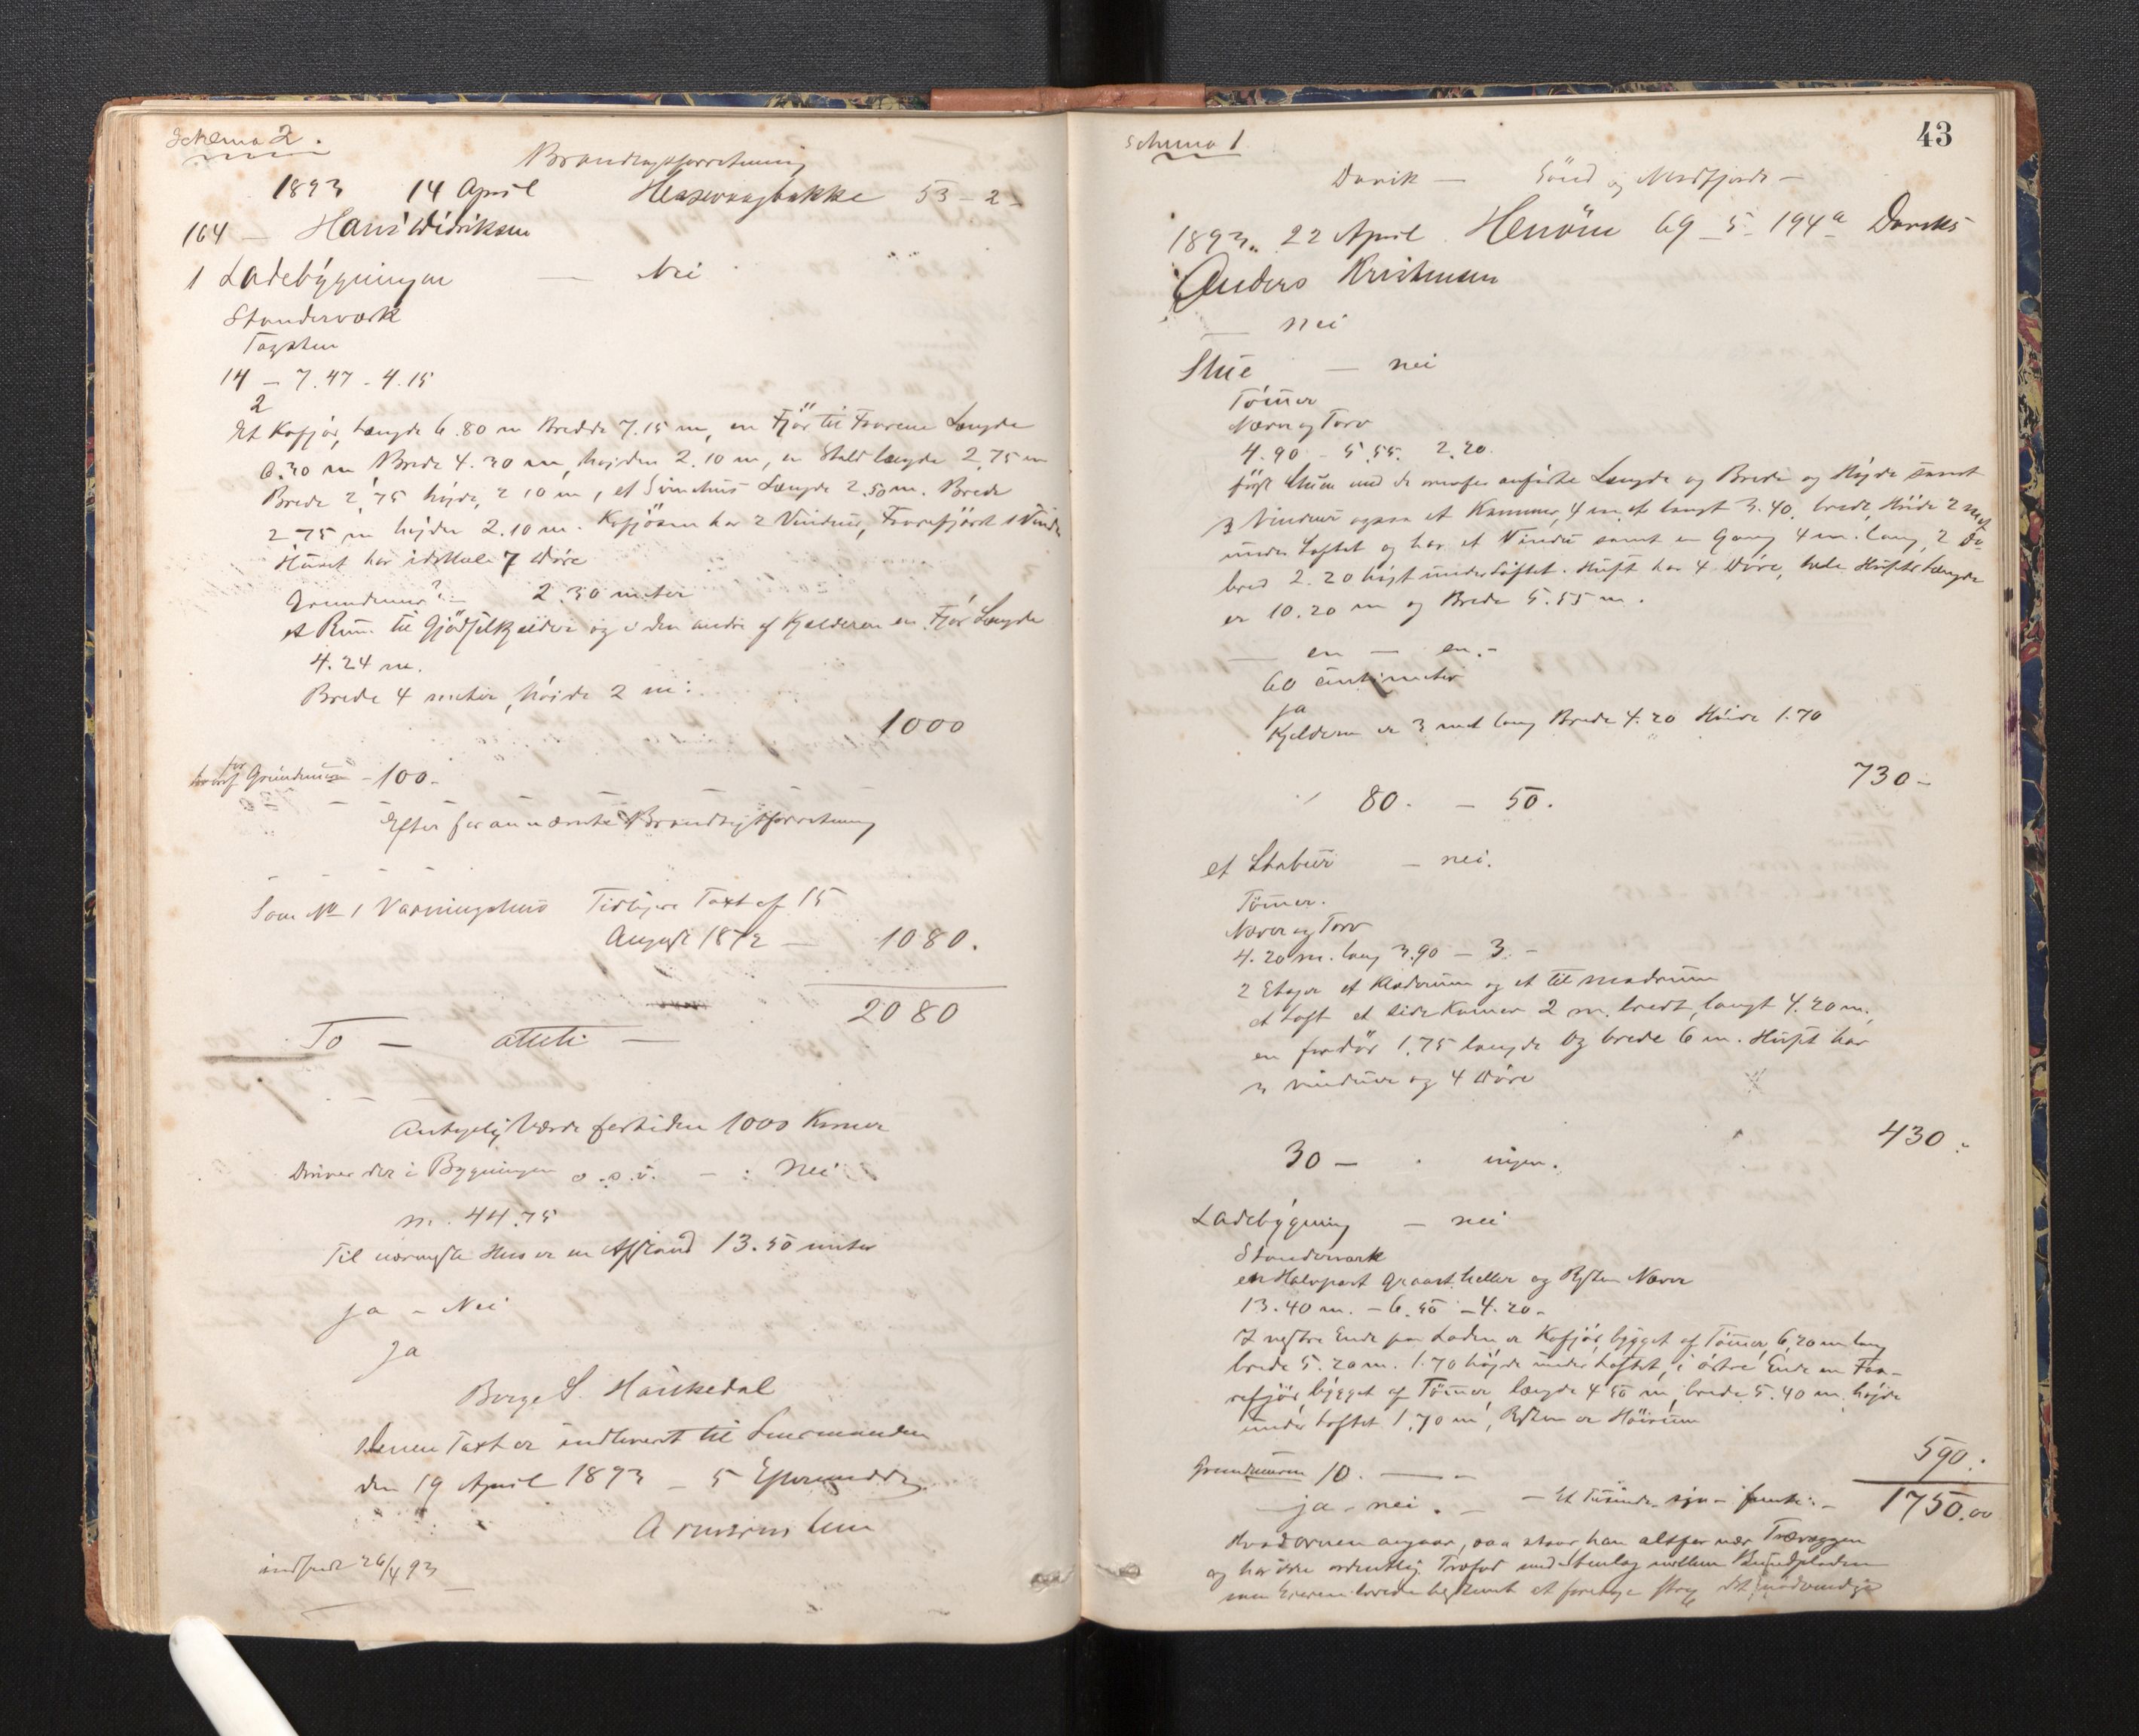 Schema 2.
Brandtaxtforretning
1893 14 April 53 - 2 -
164 - Hans Didriksen
1 Ladebygningen — Nei
Standerværk
Tagsten
14 - 7.47 - 4.15
2
Et Kofjøs, Længde 6.80 m Bredde 7.15 m, en Fjös til Faarene Længde
6.30 m Brede 4.30 m, høiden 2.10 m, en Stald længde 2,75 m
Brede 2,75 höjde, 2 10 m, et Svinehus Længde 2.50 m. Brede
2.75 m højden 2.10 m. Kofjösen har 2 Vinduer, Faarefjöset 1 Vindu
Huset har idethele 7 Döre
Grundmur? - 2.30 meter
et Rum til Gjödselkjelder og i den andre af Kjelderen en Fjös Længde
4.24 m.
Brede 4 meter, höide 2 m:
1000
hvoraf for Grundmuren - 100 -
Efter Brandtaxtforretning
Som No 1 Vaaningshus Tidligere Taxt af 15
August 1872 — 1080.
2080
To — otteti —
Antagelig Værdi fortiden 1000 Kroner
Drives der i Bygningen o.s.v. - : Nei
m. 44.75
Til nærmeste Hus er en Afstand 13.50 meter
Ja - Nei
Ja
Børge S. Haukedal
Denne Taxt er indleveret til Lensmanden
den 19 April 1893 - 5
indsendt 26/4 93

Schema 1
43
Davik — Sönd og Nordfjords -
1893. 22 April. Henöen 69 - 5 - 194a Daviks
Anders Kristensen
— nei
Stue — nei
Tömmer
Næver og Torv
4.90 - 5.55. 2.20.
først Stuen med de ovenfor anførte Længde og Brede og Höjde samt
3 Vinduer ogsaa et Kammer, 4 m langt 3.40 bredt, Höide 2 met
under Loftet og har et Vindu samt en Gang 4 m. lang, 2 do
bred 2.20 höjt under Loftet. Huset har 4 Döre, hele Husets Længde
er 10.20 m og Brede 5.55 m.
— en — en. -
60 centimeter
ja
Kjelderen er 3 met lang Brede 4.20 Höide 1.70
730 -
80. - 50.
et Stabur - nei.
Tömmer.
Næver og Torv
4.20 m. lang 3.90 - 3. -
2 Etager et Klæderum og et til Madrum
et Loft et sidekamer 2 m. bredt, langt 4.20 m.,
en 1.75 længde og brede 6 m. Huset har
3 vinduer og 4 Döre
430 -
30 — ingen.
Ladebygning - nei
Standerværk
en Halvpart Graasteheller og Resten Næver
13.40 m. - 6.50 - 4.20 -
I vestre Ende paa Laden er Kofjös, bygget af Tömmer, 6,20 m lang
brede 5.20 m. 1.70 höjde under Loftet, i östre Ende en Faa-
refjös, bygget af Tömmer, længde 4 50 m, brede 5.40 m. höjde
under Loftet 1.70 m, Resten er Höirum
590.
Grundmuren 10. — -
- ja - nei. - - Et Tusinde - syv - femti. - 1750.00
Hvad ovnen angaar, saa staar han altfor nær Trævæggen
og har ikke ordentlig Træfod med Stenlag mellem Bundpladen
men Eieren lovede bestemt at foretage strax det nødvendige